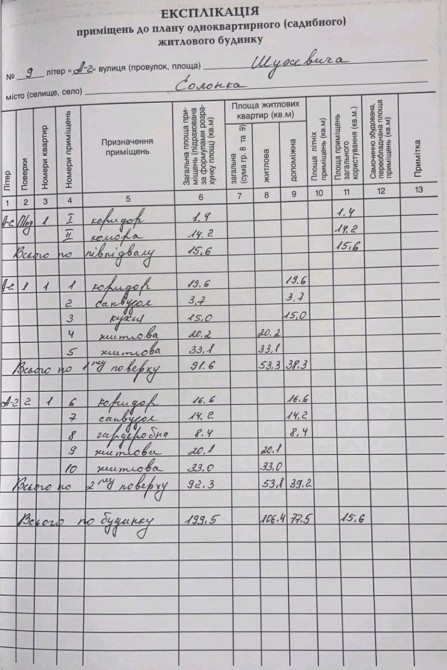 ЕКСПЛІКАЦІЯ
приміщень до плану одноквартирного (садибного)
житлового будинку
№ 9 літер "А-2" вулиця (провулок, площа) Шухевича
місто (селище, село) Солонка
Літер Поверхи Номери квартир Номери приміщень Призначення приміщень Загальна площа приміщень (підрахована за формулами розрахунку площ) (кв.м) Площа житлових квартир (кв.м) загальна (сума гр. 8 та 9) житлова допоміжна Площа літніх приміщень Площа приміщень загального користування (кв.м.) Самочинно збудована, переобладнана площа приміщень (кв.м) Примітка
1 2 3 4 5 6 7 8 9 10 11 12 13
А-2 Під 1 I коридор 1.4 1.4
II комора 14.2 14.2
Всього по півпідвалу 15.6 15.6
А-2 1 1 1 коридор 19.6 19.6
2 санвузол 3.7 3.7
3 кухня 15.0 15.0
4 житлова 20.2 20.2
5 житлова 33.1 33.1
Всього по 1му поверху 91.6 53.3 38.3
А-2 2 1 6 коридор 16.6 16.6
7 санвузол 14.2 14.2
8 гардеробна 8.4 8.4
9 житлова 20.1 20.1
10 житлова 33.0 33.0
Всього по 2му поверху 92.3 53.1 39.2
Всього по будинку 199.5 106.4 77.5 15.6